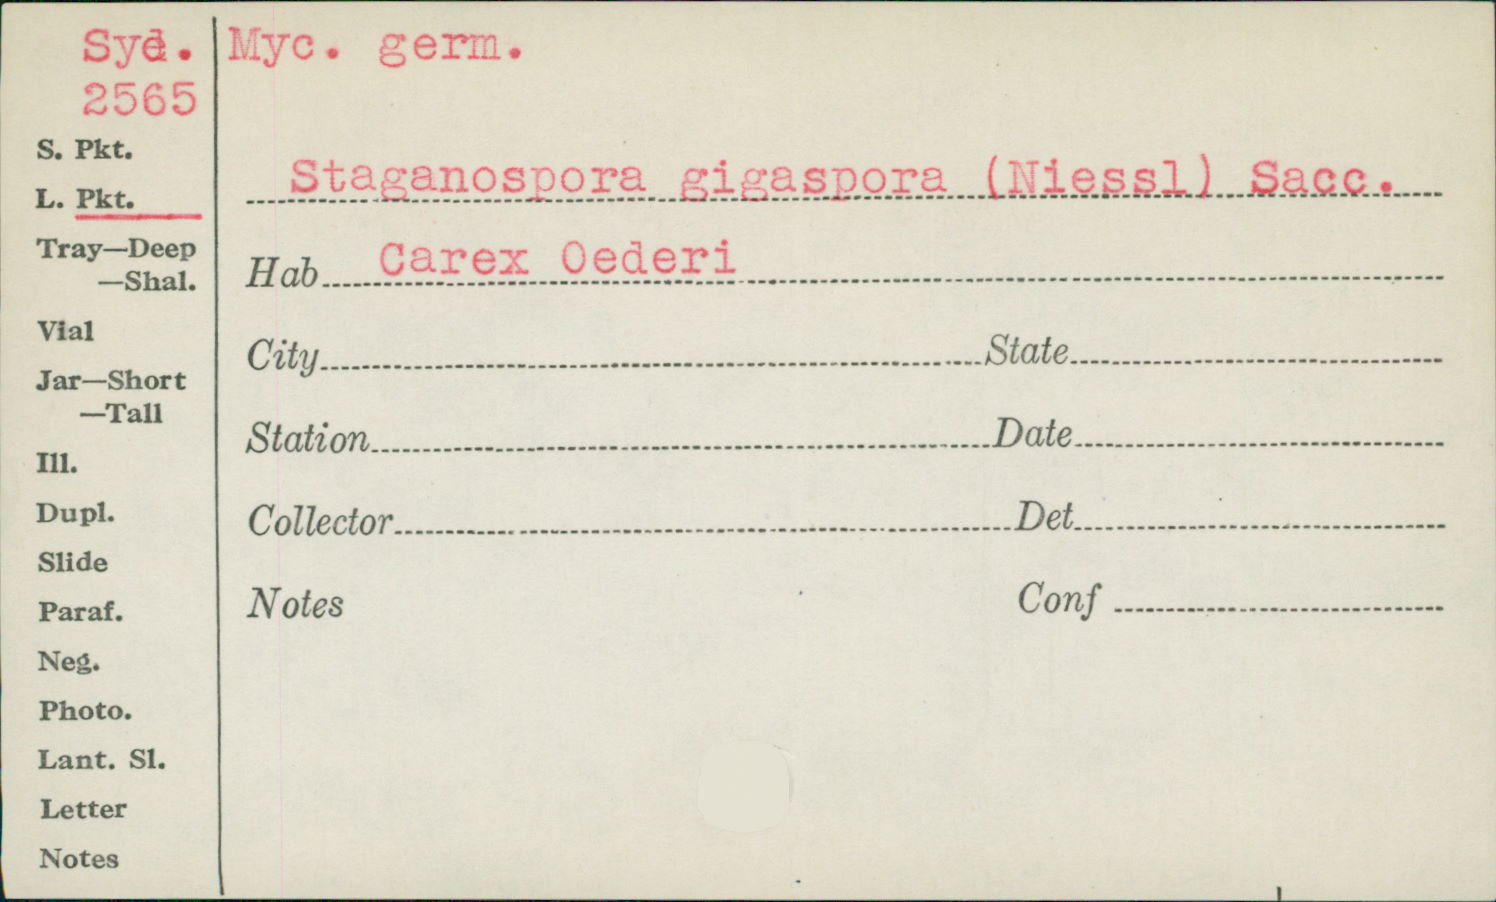 Syd. Myc. germ.
2565
S. Pkt.
Staganospora gigaspora (Niessl) Sacc.
L. Pkt.
Tray—Deep
Hab Carex Oederi
—Shal.
Vial
City State
Jar—Short
—Tall
Station Date
Ill.
Dupl.
Collector Det
Slide
Paraf.
Notes Conf
Neg.
Photo.
Lant. Sl.
Letter
Notes